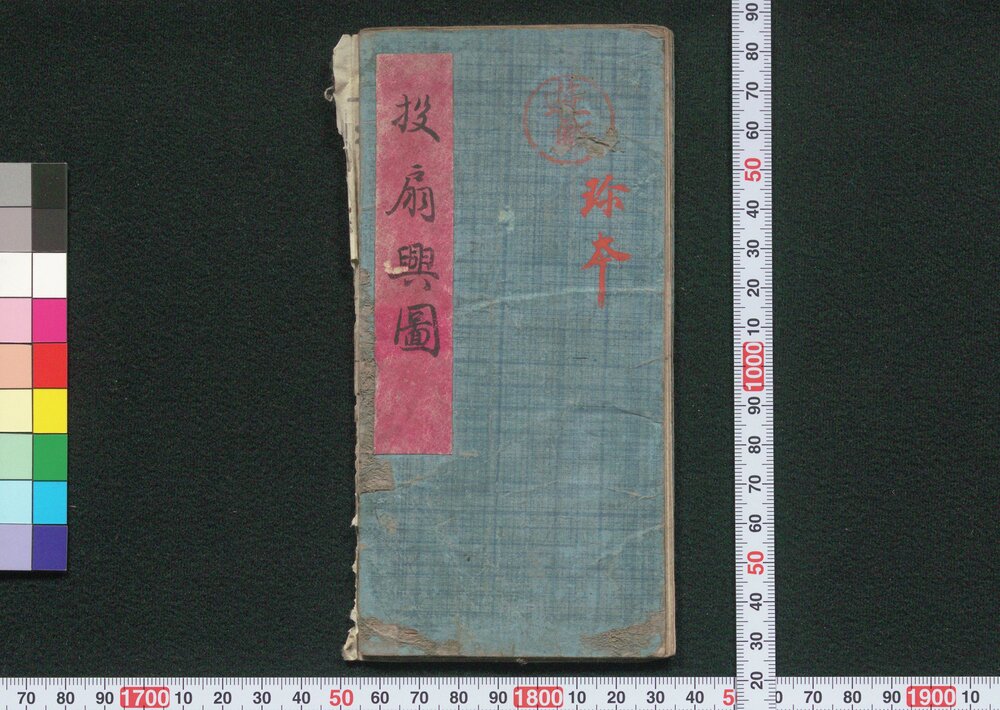 珍本
投扇興圖
90
80
70
60
50
40
30
20
10
1000
90
80
70
60
50
40
30
20
70 80 90 1700 10 20 30 40 50 60 70 80 90 1800 10 20 30 40 5 60 70 80 90 1900 10